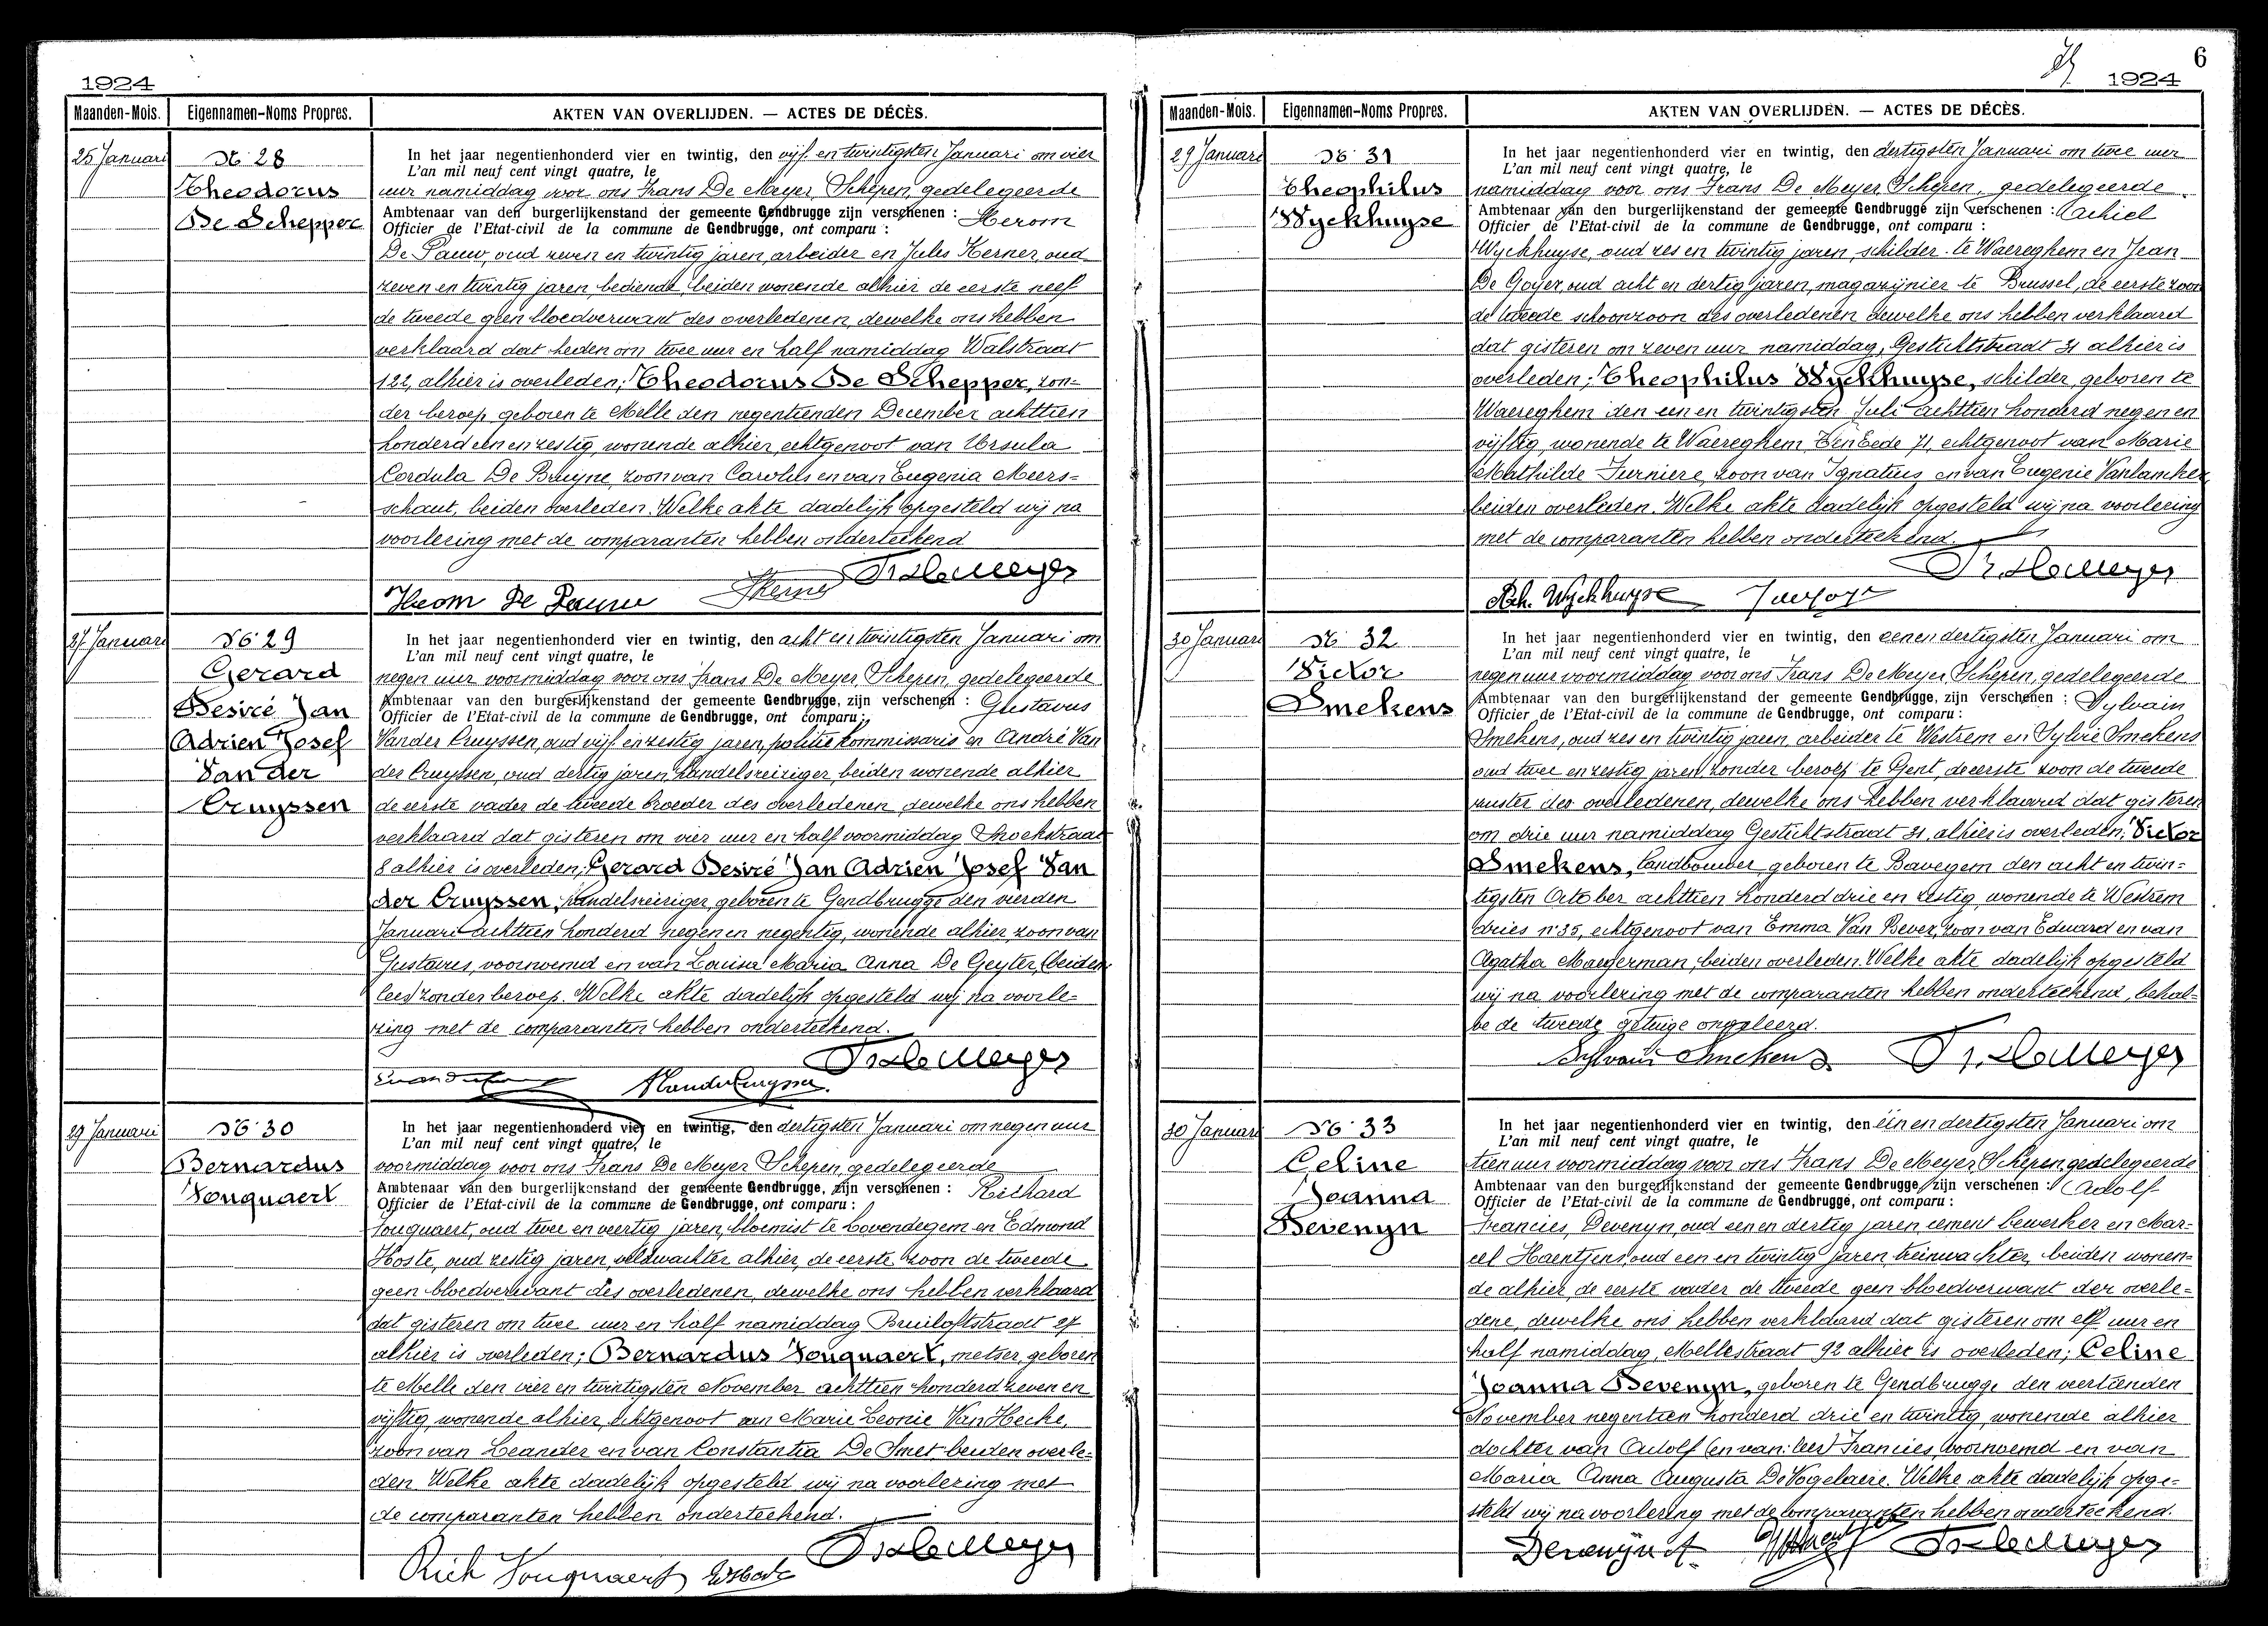 1924
Maanden-Mois. Eigennamen-Noms Propres. AKTEN VAN OVERLIJDEN. — ACTES DE DÉCÈS.
25 Januari
N° 28
Theodorus
De Schepper
In het jaar negentienhonderd vier en twintig, den vijf en twintigsten Januari om vier
L'an mil neuf cent vingt quatre, le
uur namiddag voor ons Frans De Meyer, Schepen, gedelegeerde
Ambtenaar van den burgerlijkenstand der gemeente Gendbrugge zijn verschenen : Herom
Officier de l'Etat-civil de la commune de Gendbrugge, ont comparu :
De Pauw, oud zeven en twintig jaren, arbeider en Jules Kerner, oud
zeven en twintig jaren, bediende, beiden wonende alhier de eerste neef
de tweede geen bloedverwant des overledenen, dewelke ons hebben
verklaard dat heden om twee uur en half namiddag Walstraat
122, alhier is overleden; Theodorus De Schepper, zon=
der beroep, geboren te Melle den negentienden December achttien
honderd een en zestig, wonende alhier, echtgenoot van Ursula
Cordula De Bruyne, zoon van Carolus en van Eugenia Meers=
schaut, beiden overleden. Welke akte dadelijk opgesteld wij na
voorlezing met de comparanten hebben onderteekend
Fr. De Meyer
Herom De Pauw JKerner
27 Januari
N° 29
Gerard
Desiré Jan
Adrien Josef
Van der
Cruyssen
In het jaar negentienhonderd vier en twintig, den acht en twintigsten Januari om
L'an mil neuf cent vingt quatre, le
negen uur voormiddag voor ons Frans De Meyer Schepen, gedelegeerde
Ambtenaar van den burgerlijkenstand der gemeente Gendbrugge, zijn verschenen : Gustavus
Officier de l'Etat-civil de la commune de Gendbrugge, ont comparu :
Vander Cruyssen, oud vijf en zestig jaren, politie kommissaris en André Van
der Cruyssen, oud dertig jaren, handelsreiziger, beiden wonende alhier
de eerste vader de tweede broeder des overledenen, dewelke ons hebben
verklaard dat gisteren om vier uur en half voormiddag Snoekstraat
8 alhier is overleden; Gerard Desiré Jan Adrien Josef Van
der Cruyssen, handelsreiziger, geboren te Gendbrugge den vierden
Januari achttien honderd negen en negentig, wonende alhier, zoon van
Gustavus, voornoemd en van Louisa Maria Anna De Geyter, (beiden
lees) zonder beroep. Welke akte dadelijk opgesteld wij na voorle=
zing met de comparanten hebben onderteekend.
Fr. De Meyer
AVanderCruyssen
29 Januari
N° 30
Bernardus
Vouquaert
In het jaar negentienhonderd vier en twintig, den dertigsten Januari om negen uur
L'an mil neuf cent vingt quatre, le
voormiddag voor ons Frans De Meyer Schepen, gedelegeerde
Ambtenaar van den burgerlijkenstand der gemeente Gendbrugge, zijn verschenen : Richard
Officier de l'Etat-civil de la commune de Gendbrugge, ont comparu :
Vouquaert, oud twee en veertig jaren, bloemist te Lovendegem en Edmond
Hoste, oud zestig jaren, veldwachter alhier, de eerste zoon de tweede
geen bloedverwant des overledenen, dewelke ons hebben verklaard
dat gisteren om twee uur en half namiddag Bruiloftstraat 27
alhier is overleden; Bernardus Vouquaert, metser, geboren
te Melle den vier en twintigsten November achttien honderd zeven en
vijftig, wonende alhier, echtgenoot van Marie Leonie Van Hecke,
zoon van Leander en van Constantia De Smet, beiden overle=
den. Welke akte dadelijk opgesteld wij na voorlezing met
de comparanten hebben onderteekend.
Fr. De Meyer
Rich Vouquaert EHoste
6
1924
Maanden-Mois. Eigennamen-Noms Propres. AKTEN VAN OVERLIJDEN. — ACTES DE DÉCÈS.
29 Januari
N° 31
Theophilus
Wyckhuyse
In het jaar negentienhonderd vier en twintig, den dertigsten Januari om twee uur
L'an mil neuf cent vingt quatre, le
namiddag voor ons Frans De Meyer, Schepen, gedelegeerde
Ambtenaar van den burgerlijkenstand der gemeente Gendbrugge zijn verschenen : Achiel
Officier de l'Etat-civil de la commune de Gendbrugge, ont comparu :
Wyckhuyse, oud zes en twintig jaren, schilder te Waereghem en Jean
De Goyer, oud acht en dertig jaren, magazijnier te Brussel, de eerste zoon
de tweede schoonzoon des overledenen dewelke ons hebben verklaard
dat gisteren om zeven uur namiddag, Gestichtstraat 31 alhier is
overleden; Theophilus Wyckhuyse, schilder, geboren te
Waereghem den een en twintigsten Juli achttien honderd negen en
vijftig, wonende te Waereghem Ten Eede 71, echtgenoot van Marie
Mathilde Furniere, zoon van Ignatius en van Eugenie Vanlancker,
beiden overleden. Welke akte dadelijk opgesteld wij na voorlezing
met de comparanten hebben onderteekend.
Fr. De Meyer
Ach. Wyckhuyse
30 Januari
N° 32
Victor
Smekens
In het jaar negentienhonderd vier en twintig, den eenen dertigsten Januari om
L'an mil neuf cent vingt quatre, le
negen uur voormiddag voor ons Frans De Meyer Schepen, gedelegeerde
Ambtenaar van den burgerlijkenstand der gemeente Gendbrugge, zijn verschenen : Sylvain
Officier de l'Etat-civil de la commune de Gendbrugge, ont comparu :
Smekens, oud zes en twintig jaren, arbeider te Westrem en Sylvie Smekens
oud twee en zestig jaren, zonder beroep te Gent, de eerste zoon de tweede
zuster des overledenen, dewelke ons hebben verklaard dat gisteren
om drie uur namiddag Gestichtstraat 31, alhier is overleden; Victor
Smekens, landbouwer, geboren te Bavegem den acht en twin=
tigsten October achttien honderd drie en zestig, wonende te Westrem
dries n° 35, echtgenoot van Emma Van Bever, zoon van Eduard en van
Agatha Moeyerman, beiden overleden. Welke akte dadelijk opgesteld
wij na voorlezing met de comparanten hebben onderteekend, behal=
ve de tweede getuige ongeleerd.
Sylvain Smekens Fr. De Meyer
30 Januari
N° 33
Celine
Joanna
Devenyn
In het jaar negentienhonderd vier en twintig, den één en dertigsten Januari om
L'an mil neuf cent vingt quatre, le
tien uur voormiddag voor ons Frans De Meyer, Schepen, gedelegeerde
Ambtenaar van den burgerlijkenstand der gemeente Gendbrugge zijn verschenen : Adolf
Officier de l'Etat-civil de la commune de Gendbrugge, ont comparu :
Francies, Devenyn, oud een en dertig jaren cement bewerker en Mar=
cel Haentjens, oud een en twintig jaren, treinwachter, beiden wonen=
de alhier, de eerste vader de tweede geen bloedverwant der overle=
dene, dewelke ons hebben verklaard dat gisteren om elf uur en
half namiddag, Mellestraat 92 alhier is overleden; Celine
Joanna Devenyn, geboren te Gendbrugge den veertienden
November negentien honderd drie en twintig, wonende alhier
dochter van Adolf (en van: lees) Francies, voornoemd en van
Maria Anna Augusta De Vogelaere. Welke akte dadelijk opge=
steld wij na voorlezing met de comparanten hebben onderteekend.
Devenijn A. Fr. De Meyer